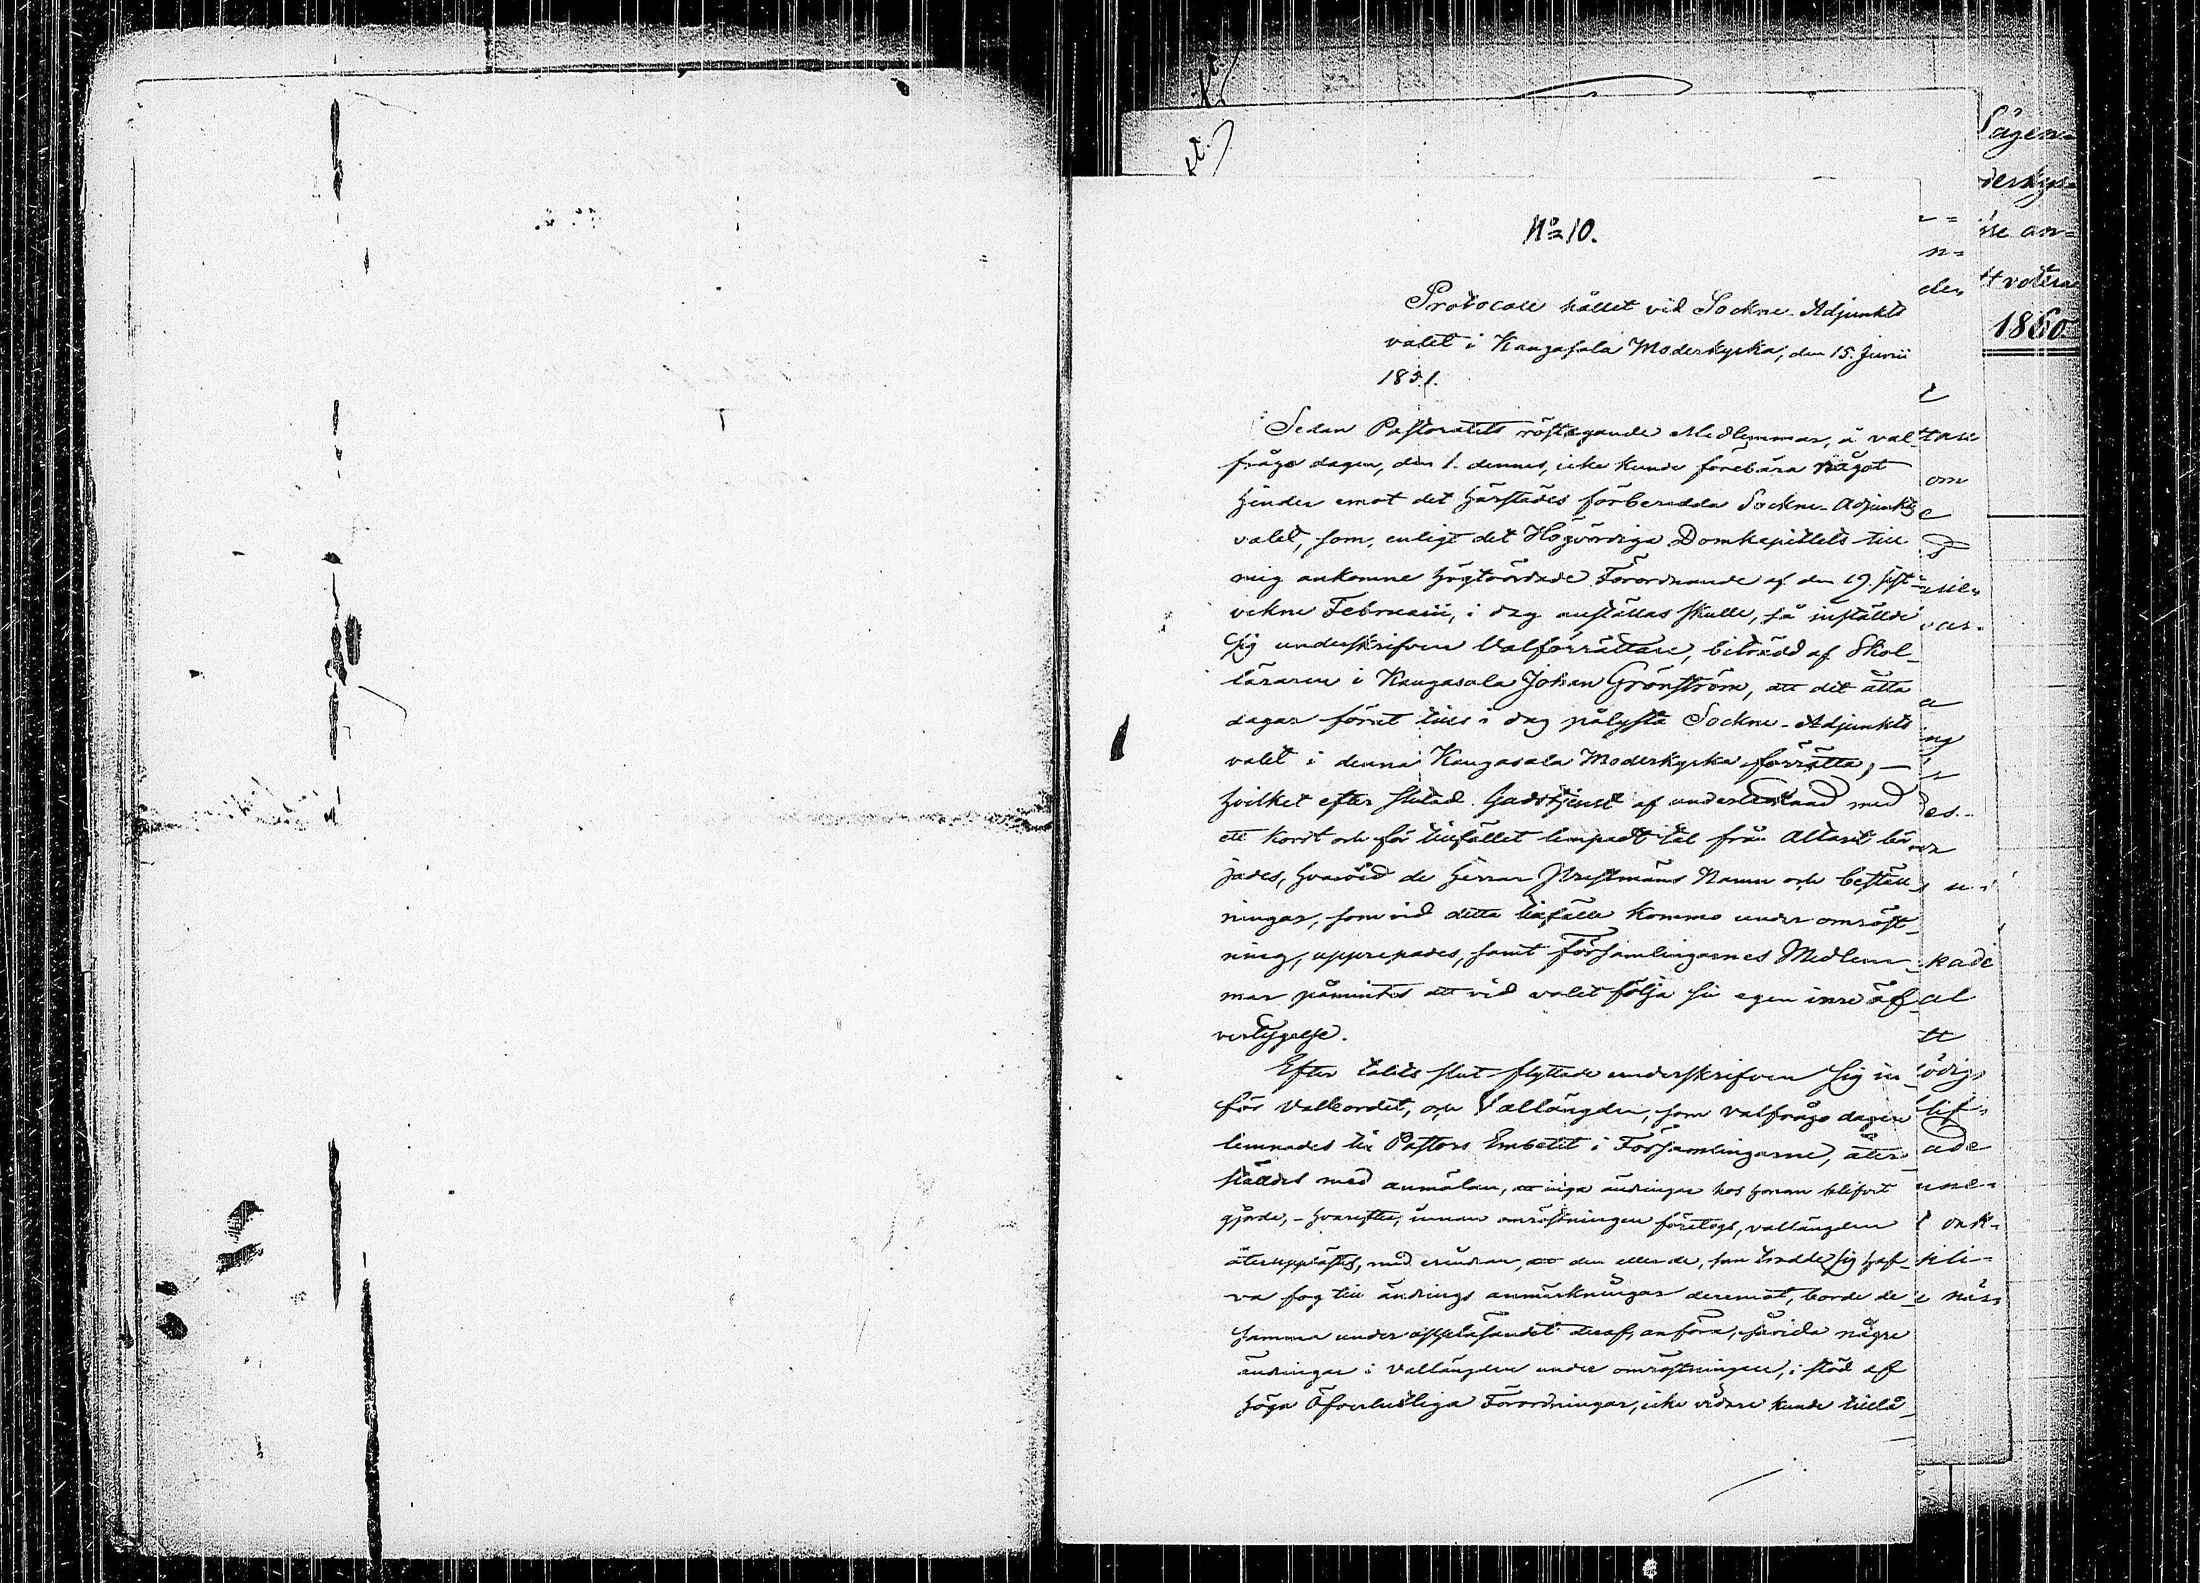 No 10.
Protocoll hållet vid Sockne-Adjunkts
valet i Kangasala Moderkyrka, den 15. Junii
1851.
Sedan Pastoratets röstegande Medlemmar, å val-
fråge dagen, den 1. dennes, icke kunde förebära något
hinder emot det härstädes förberedda Sockne-Adjunkts
valet, som, enligt det Högvördiga Domkapitlets till
mig ankomne högtvördade Förordnande af den 19. sist-
vekne Februarii, i dag anställas skulle, så inställde
sig underskrifven Valförrättare, biträdd af Skol-
läraren i Kangasala Johan Grönström, att det åtta
dagar förut till i dag pålysta Sockne-Adjunkts
valet i denna Kangasala Moderkyrka förrätta, —
hvilket efter slutad Gudstjenst af undertecknad med
ett kort och för tillfället lempadt tal från Altaret bör-
jades, hvarvid de Herrar Prestmäns Namn och beställ-
ningar, som vid detta tillfälle komma under omröst-
ning, upprepades, samt Församlingarnes Medlem-
mar påmintes att vid valet följa sin egen inre öf-
vertygelse.
Efter talets slut flyttade underskrifven sig in-
för Valbordet, och Vallängden, som valfråge dagen
lemnades till Pastors Embetet i Församlingarne, åter-
ställdes med anmälan, att inga ändringar hos honom blifvit
gjorde, - hvarefter, innan omröstningen företogs, vallängden
återupplästes, med erindran, att den eller de, som trodde sig haf-
va fog till ändrings anmärkningar deremot, borde de-
samma under uppläsandet deraf, anföra, såvida några
ändringar i vallängden under omröstningen, i stöd af
höga Öfverhetliga Förordningar, icke vidare kunde tillå-
1860